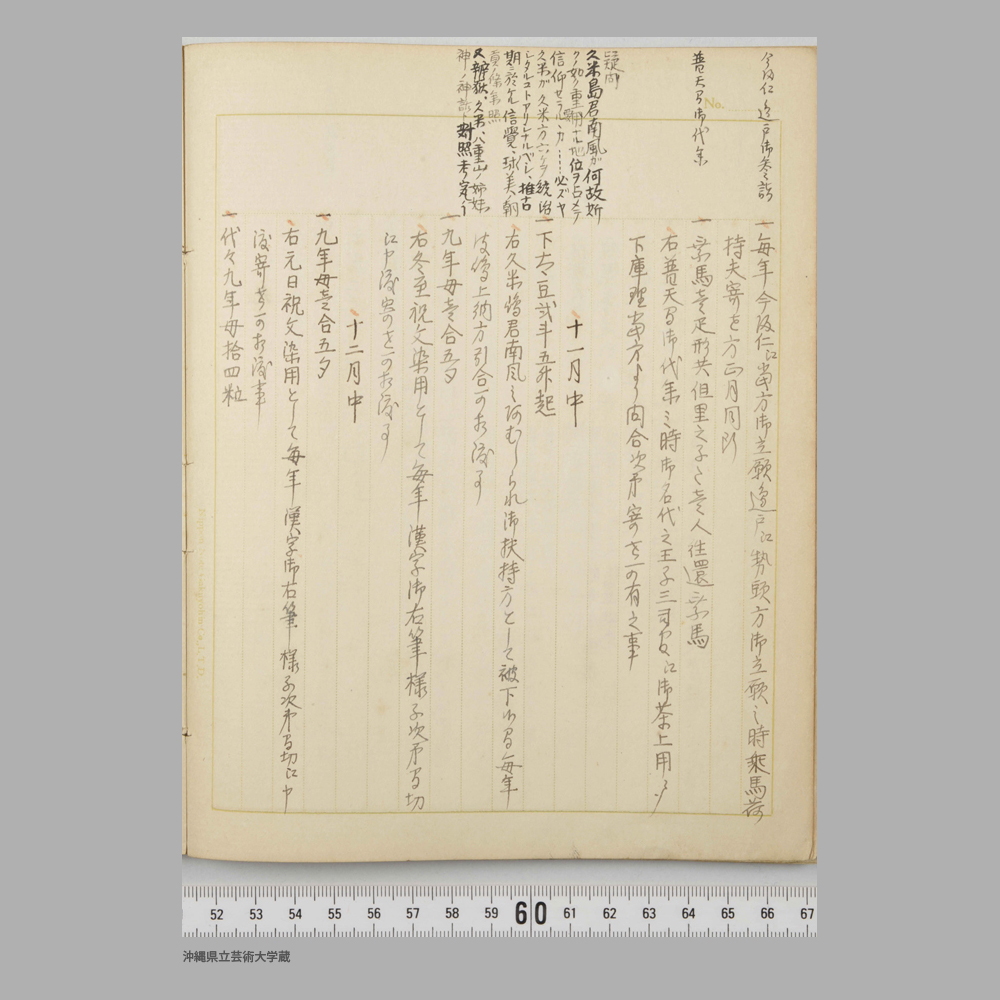 今帰仁辺戸御参詣
普天間御代参
No.
疑問
久米島君南風が何故斯
クノ如ク重 ナル地位ヲ占メテ
信仰セラル、カ……必ズヤ
久米が久米方六ケヲ統治
シタルコトアリシナルベシ、推古
期ニ於ケル信覺、球美ノ朝
貢ノ條參照
又辨嶽、久米、八重山ノ姉妹
神ノ神話ト對照考定ノ
一毎年今帰仁江當方御立願邊戸江勢頭方御立願之時乘馬荷
持夫寄を方正月同断
一乘馬壱疋形共但里之子た壱人往還乘馬
右普天間御代參之時御名代之王子三司官江御茶上用
下庫理當方より内合次第寄 可有之事
十一月中
一下大豆弐斗五升起
右久米嶋君南風之阿むしられ御扶持方として被下候間毎年
彼嶋上納方引合 可相渡事
一九年母壱合五夕
右冬至祝文染用として毎年漢字御右筆様子次第間切
江申渡寄 可相渡事
十二月中
一九年母壱合五夕
右元日祝文染用として毎年漢字御右筆様子次第間切江申
渡寄 可相渡事
一代々九年母拾四粒
52 53 54 55 56 57 58 59 60 61 62 63 64 65 66 67
沖縄県立芸術大学蔵